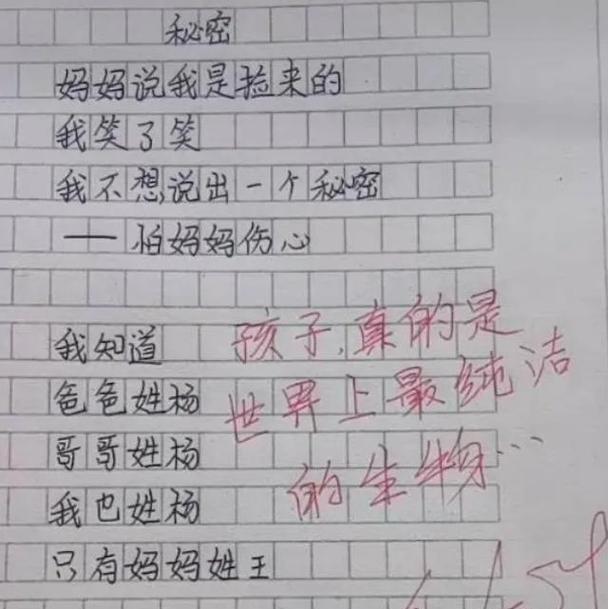 秘密
妈妈说我是捡来的
我笑了笑
我不想说出一个秘密
——怕妈妈伤心
我知道
爸爸姓杨
哥哥姓杨
我也姓杨
只有妈妈姓王
孩子,真的是
世界上最纯洁
的生物…